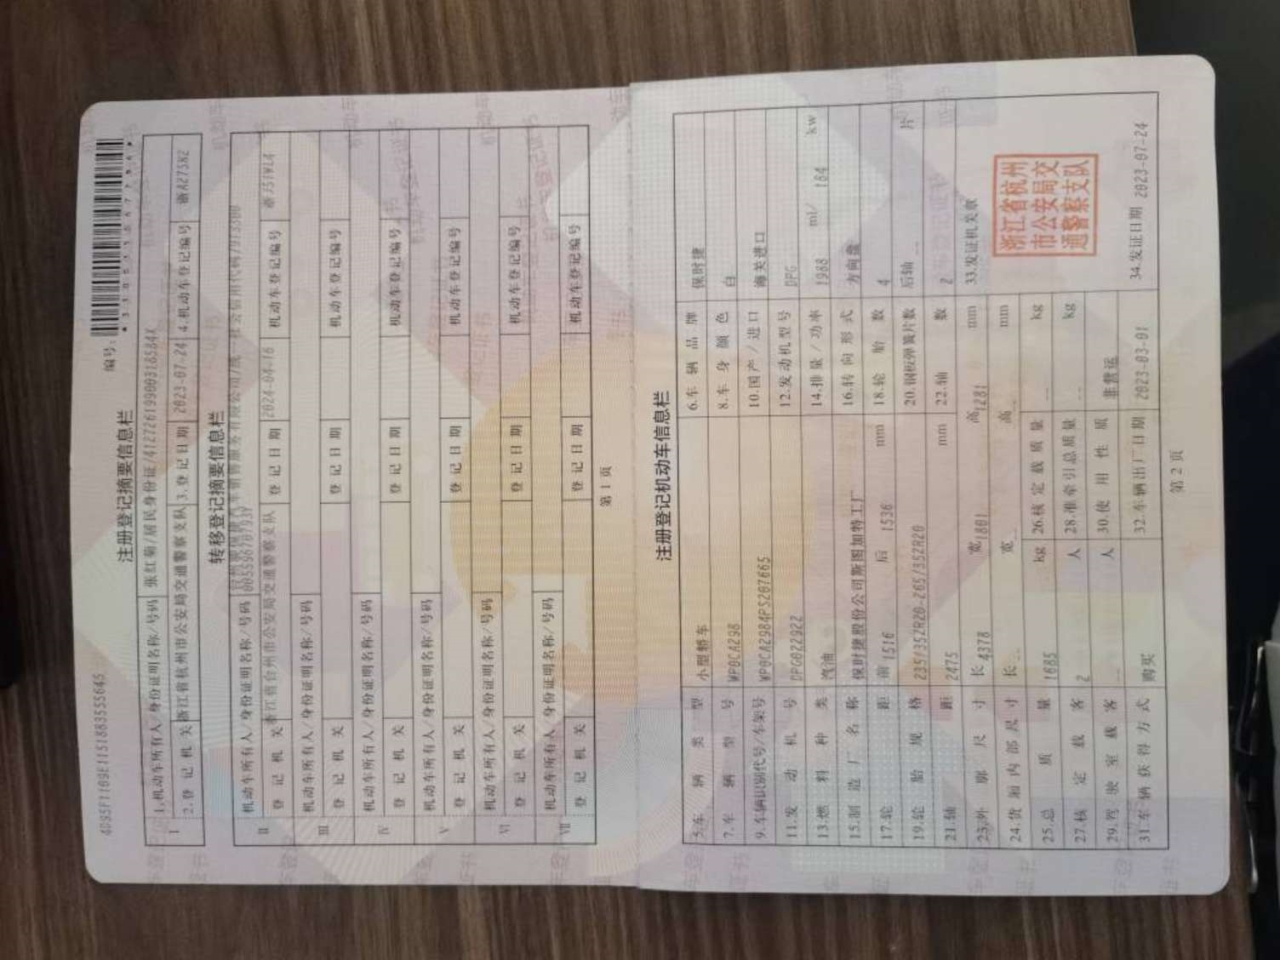 4D95F1109E1151883555645
编号:
注册登记摘要信息栏
Ⅰ
1.机动车所有人/身份证明名称/号码 张红菊/居民身份证/
2.登记机关 浙江省杭州市公安局交通警察支队 3.登记日期 2023-07-24 4.机动车登记编号 浙A275K2
转移登记摘要信息栏
Ⅱ
机动车所有人/身份证明名称/号码
登记机关 浙江省台州市公安局交通警察支队 登记日期 2024-04-16 机动车登记编号
Ⅲ
机动车所有人/身份证明名称/号码
登记机关 登记日期 机动车登记编号
Ⅳ
机动车所有人/身份证明名称/号码
登记机关 登记日期 机动车登记编号
Ⅴ
机动车所有人/身份证明名称/号码
登记机关 登记日期 机动车登记编号
Ⅵ
机动车所有人/身份证明名称/号码
登记机关 登记日期 机动车登记编号
Ⅶ
机动车所有人/身份证明名称/号码
登记机关 登记日期 机动车登记编号
第1页
注册登记机动车信息栏
5.车辆类型 小型轿车 6.车辆品牌 保时捷
7.车辆型号 WP0CA298 8.车身颜色 白
9.车辆识别代号/车架号 WP0CA2984PS207665 10.国产/进口 海关进口
11.发动机号 DPG022922 12.发动机型号 DPG
13.燃料种类 汽油 14.排量/功率 1988 ml/ 184 kw
15.制造厂名称 保时捷股份公司斯图加特工厂 16.转向形式 方向盘
17.轮距 前 1516 后 1536 mm 18.轮胎数 4
19.轮胎规格 235/35ZR20-265/35ZR20 20.钢板弹簧片数 后轴 -- 片
21.轴距 2475 mm 22.轴数 2
23.外廓尺寸 长 4378 宽 1801 高 1281 mm 33.发证机关章
24.货厢内部尺寸 长 -- 宽 -- 高 -- mm
25.总质量 1685 kg 26.核定载质量 -- kg
27.核定载客 2 人 28.准牵引总质量 -- kg
29.驾驶室载客 -- 人 30.使用性质 非营运
31.车辆获得方式 购买 32.车辆出厂日期 2023-03-01 34.发证日期 2023-07-24
浙江省杭州
市公安局交
通警察支队
第2页